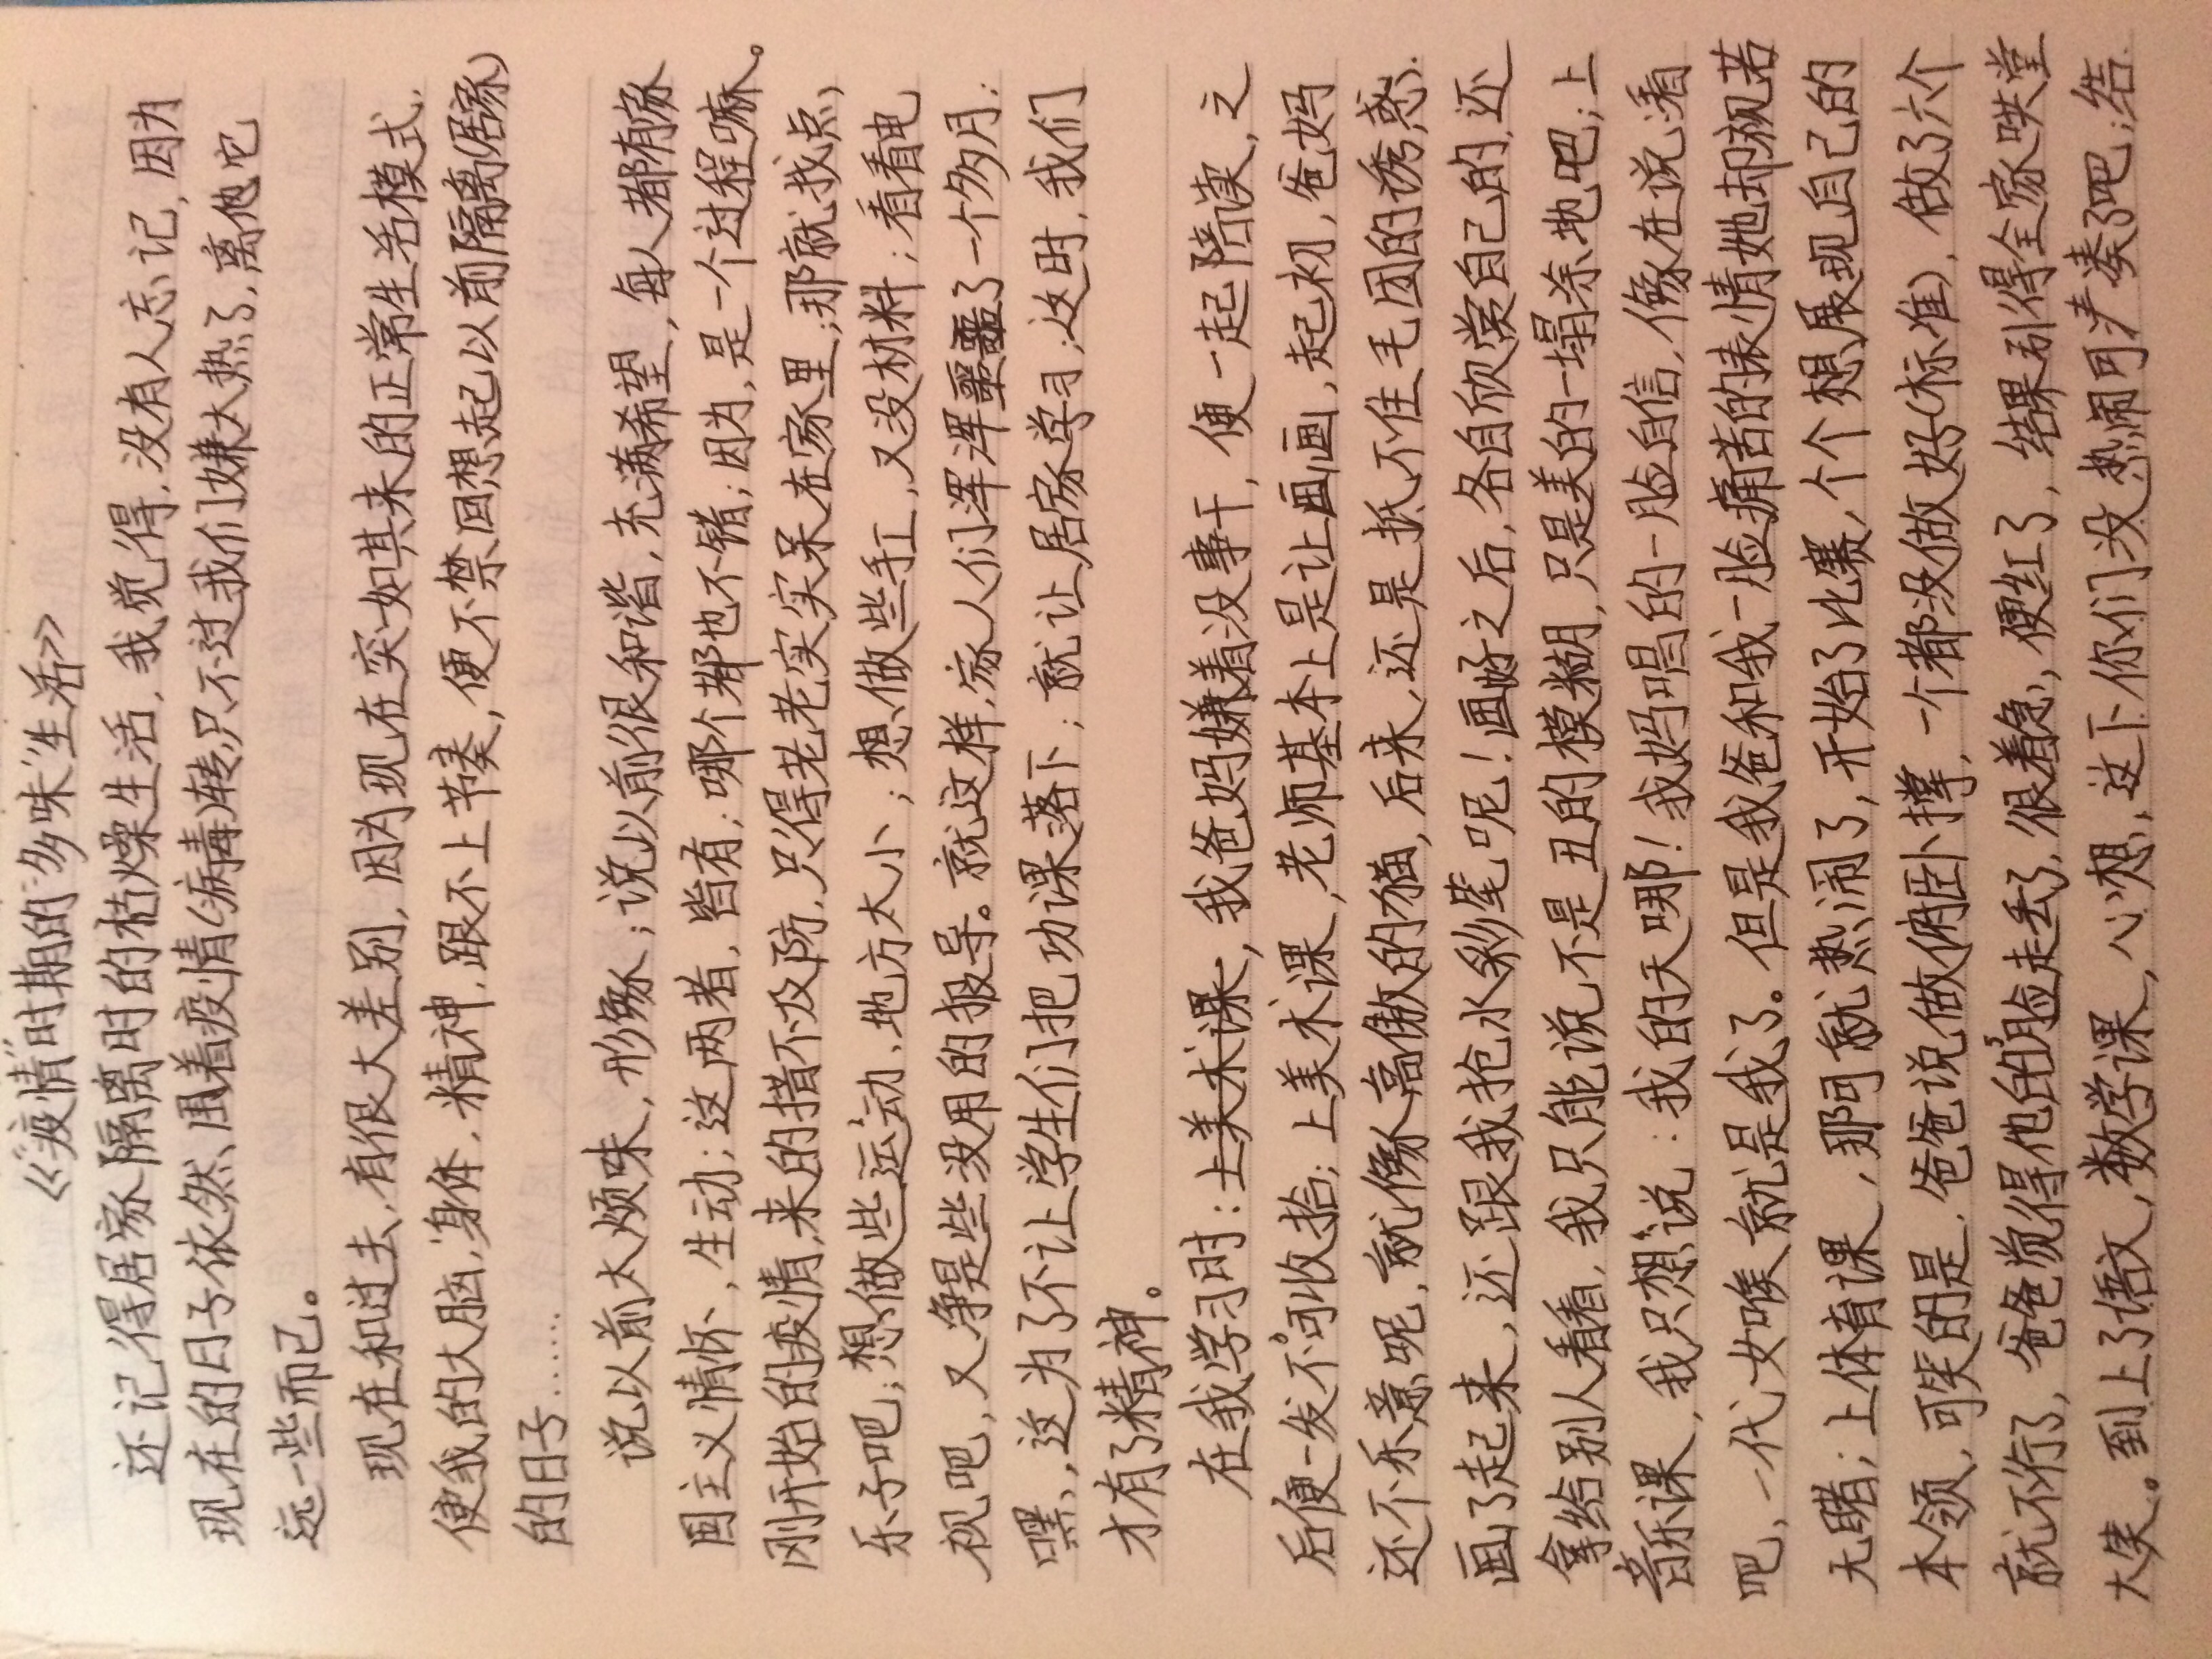 《“疫情”时期的“多味”生活》
还记得居家隔离时的枯燥生活，我觉得，没有人忘记，因为
现在的日子依然、围着疫情(病毒)转，只不过我们嫌太热了，离它
远一些而已。
现在和过去，有很大差别，因为现在突如其来的正常生活模式，
使我的大脑，身体，精神，跟不上节奏，便不禁回想起以前隔离(居家)
的日子……
说以前太烦味，形象；说以前很和谐，充满希望，每人都有家
国主义情怀，生动；这两者，皆有；哪个都也不错；因为，是一个过程嘛。
刚开始的疫情，来的措不及防，只得老老实实呆在家里；那就找点
乐子吧；想做些运动，地方太小；想做些手工，又没材料；看看电
视吧，又净是些没用的报导。就这样，家人们浑浑噩噩了一个多月；
嘿，这为了不让学生们把功课落下；就让居家学习；这时，我们
才有了精神。
在我学习时：上美术课，我爸妈嫌着没事干，便一起陪读，之
后便一发不可收拾；上美术课，老师基本上是让画画，起初，爸妈
还不乐意呢，就像高傲的猫，后来，还是抵不住毛团的诱惑，
画了起来，还跟我抢水彩笔呢！画好之后，各自欣赏自己的，还
拿给别人看看，我只能说不是丑的模糊，只是美的一塌涂地吧；上
音乐课，我只想说：我的天哪！我妈唱的一脸自信，像在说：看
吧，一代女喉就是我了。但是我爸和我一脸痛苦的表情她却视若
无睹；上体育课，那可就热闹了，开始了比赛，个个想展现自己的
本领，可笑的是，爸爸说做俯卧撑，一个都没做好(标准)，做了六个
就不行了，爸爸觉得他的脸走丢了，很着急，便红了，结果引得全家哄堂
大笑。到上了语文，数学课，心想，这下你们没热闹可凑了吧；结